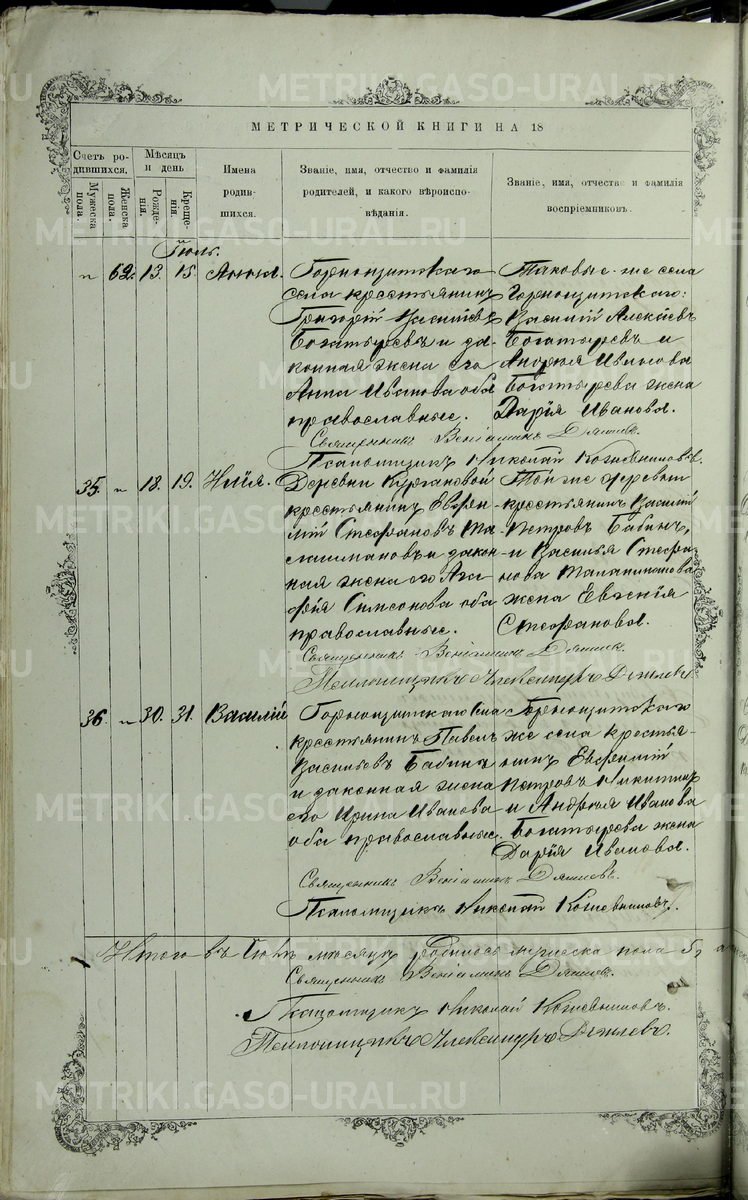 МЕТРИЧЕСКОЙ КНИГИ НА 18
Счетъ ро-
дившихся.
Мужеска
пола.
Женска
пола.
Мѣсяцъ
и день
Рожде-
нія.
Креще-
нія.
Имена
родив-
шихся.
Званіе, имя, отчество и фамилія
родителей, и какого вѣроиспо-
вѣданія.
Званіе, имя, отчество и фамилія
воспріемниковъ.
Іюль.
" 62. 13. 15. Анна.
Горнощитскаго
села крестьянинъ
Григорій Василіевъ
Богатыревъ и за-
конная жена его
Анна Иванова оба
православные.
Таковые-же села
Горнощитскаго:
Василій Алексѣевъ
Богатыревъ и
Андрея Иванова
Богатырева жена
Дарія Иванова.
Священникъ Веніаминъ
Псаломщикъ Николай Кожевниковъ.
35. " 18. 19.
Деревни Кургановой
крестьянинъ Евфи-
мій Стефановъ Та-
и закон-
ная жена его Ага-
фія Симеонова оба
православные.
Той же деревни
крестьянинъ Василій
Петровъ Бабинъ,
и Василья Стефа-
нова
жена Евгенія
Стефанова.
Священникъ Веніаминъ
Псаломщикъ Александръ
36. " 30. 31. Василій
Горнощитскаго села
крестьянинъ Павелъ
Васильевъ Бабинъ
и законная жена
его Ирина Иванова
оба православные.
Горнощитскаго
же села крестья-
нинъ Евфимій
Петровъ
и Андрея Иванова
Богатырева жена
Дарія Иванова.
Священникъ Веніаминъ
Псаломщикъ Николай Кожевниковъ.
Итого въ Іюлѣ мѣсяцѣ родилось мужеска пола 5, а
Священникъ Веніаминъ
Псаломщикъ Николай Кожевниковъ.
Псаломщикъ Александръ
METRIKI.GASO-URAL.RU